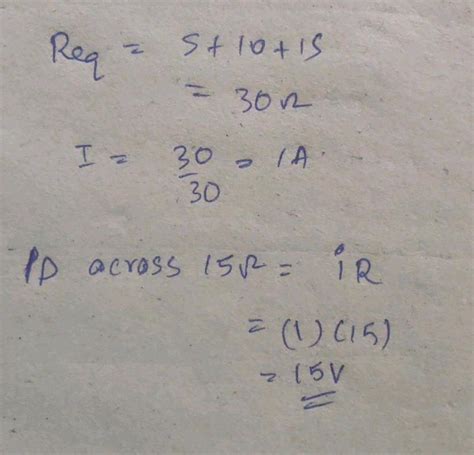 Req = 5+10+15
= 30Ω
I = 30/30 = 1A.
PD across 15Ω = iR
= (1)(15)
= 15V